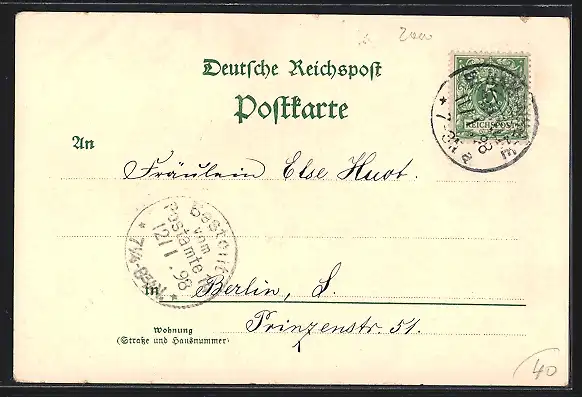 Deutsche Reichspost
Postkarte
5
REICHSPOST
An
Fräulein Else Huot.
Bestellt
vom
Postamte
12/1.98
7¼-8½V.
in Berlin, S.
Prinzenstr. 51.
Wohnung
(Straße und Hausnummer)
40